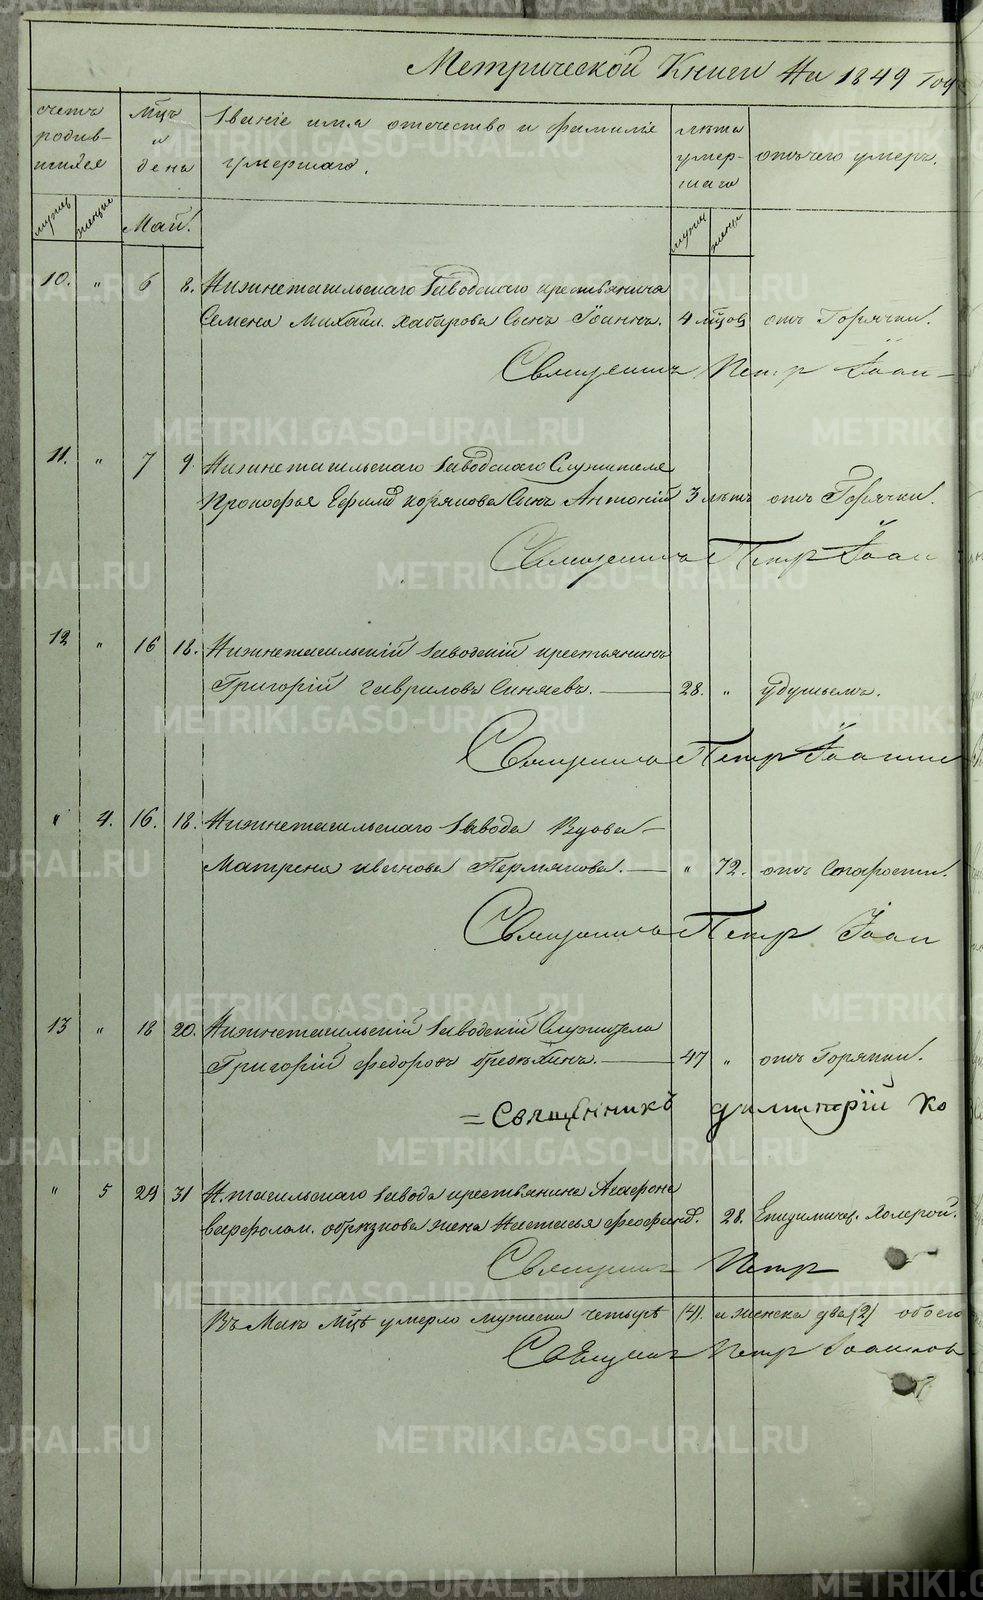 Метрической Книги На 1849 Год
счетъ родив- шихся
Мцъ и день
Званіе имя отечество и фамилія умершаго.
лѣта умер- шаго
отъ чего умеръ.
мужес женще
Май.
мужес женще
10. " 6 8. Нижнетагильскаго Заводскаго крестьянина
Семена Михайл. Хабарова Сынъ Іоаннъ. 4 мцов отъ Горячки.
Священникъ Петр Іоан
11. " 7 9. Нижнетагильскаго Заводскаго Служителя
Прокофья Корякова Сынъ Антоній 3 лѣтъ отъ Горячки.
Священникъ Петр Іоан
12 " 16 18. Нижнетагильскій Заводскій крестьянинъ
Григорій Гавриловъ Синяевъ. 28. " удушьемъ.
Священникъ Петр Іоанно
" 4. 16. 18. Нижнетагильскаго Завода Вдова
Матрена Иванова Пермякова. " 72. отъ Старости.
Священникъ Петр Іоан
13 " 18 20. Нижнетагильскій Заводскій Служитель
Григорій Федоровъ 47 " отъ Горячки.
= Священникъ Димитрій Ко
" 5 29 31 Н.тагильскаго Завода крестьянина Агафона
Варфолом. Обрѣзкова жена Настасья 28. Епидимичес. Холерой.
Священник Петр
Въ Маѣ Мцѣ умерло мужеска четыре (4). и женска два (2) обоего
Священник Петр Іоаннов
METRIKI.GASO-URAL.RU